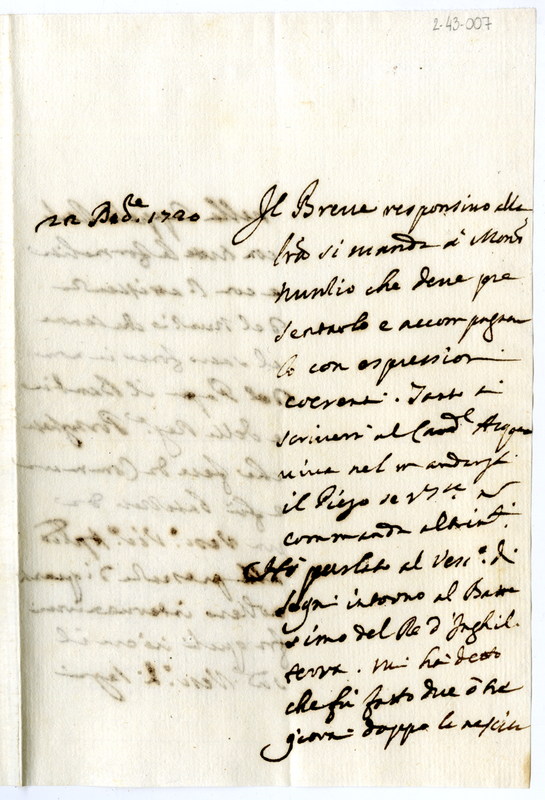 2-43-007
22 Xbre. 1720
Il Breve responsivo alla
lrã si manda à Monsr.
Nunzio che deve pre
sentarlo e accompagnar
lo con espressioni
coerenti. Tanto si
scriverà al Cardl. Acqua
viva nel mandargli
il Piego se
commanda altrimti.
Hò parlato al Vesc.º di
Segni intorno al Batte
simo del Rè d'Inghil.
terra. Mi hà detto
che fù fatto due ò tre
giorni doppo la nascita